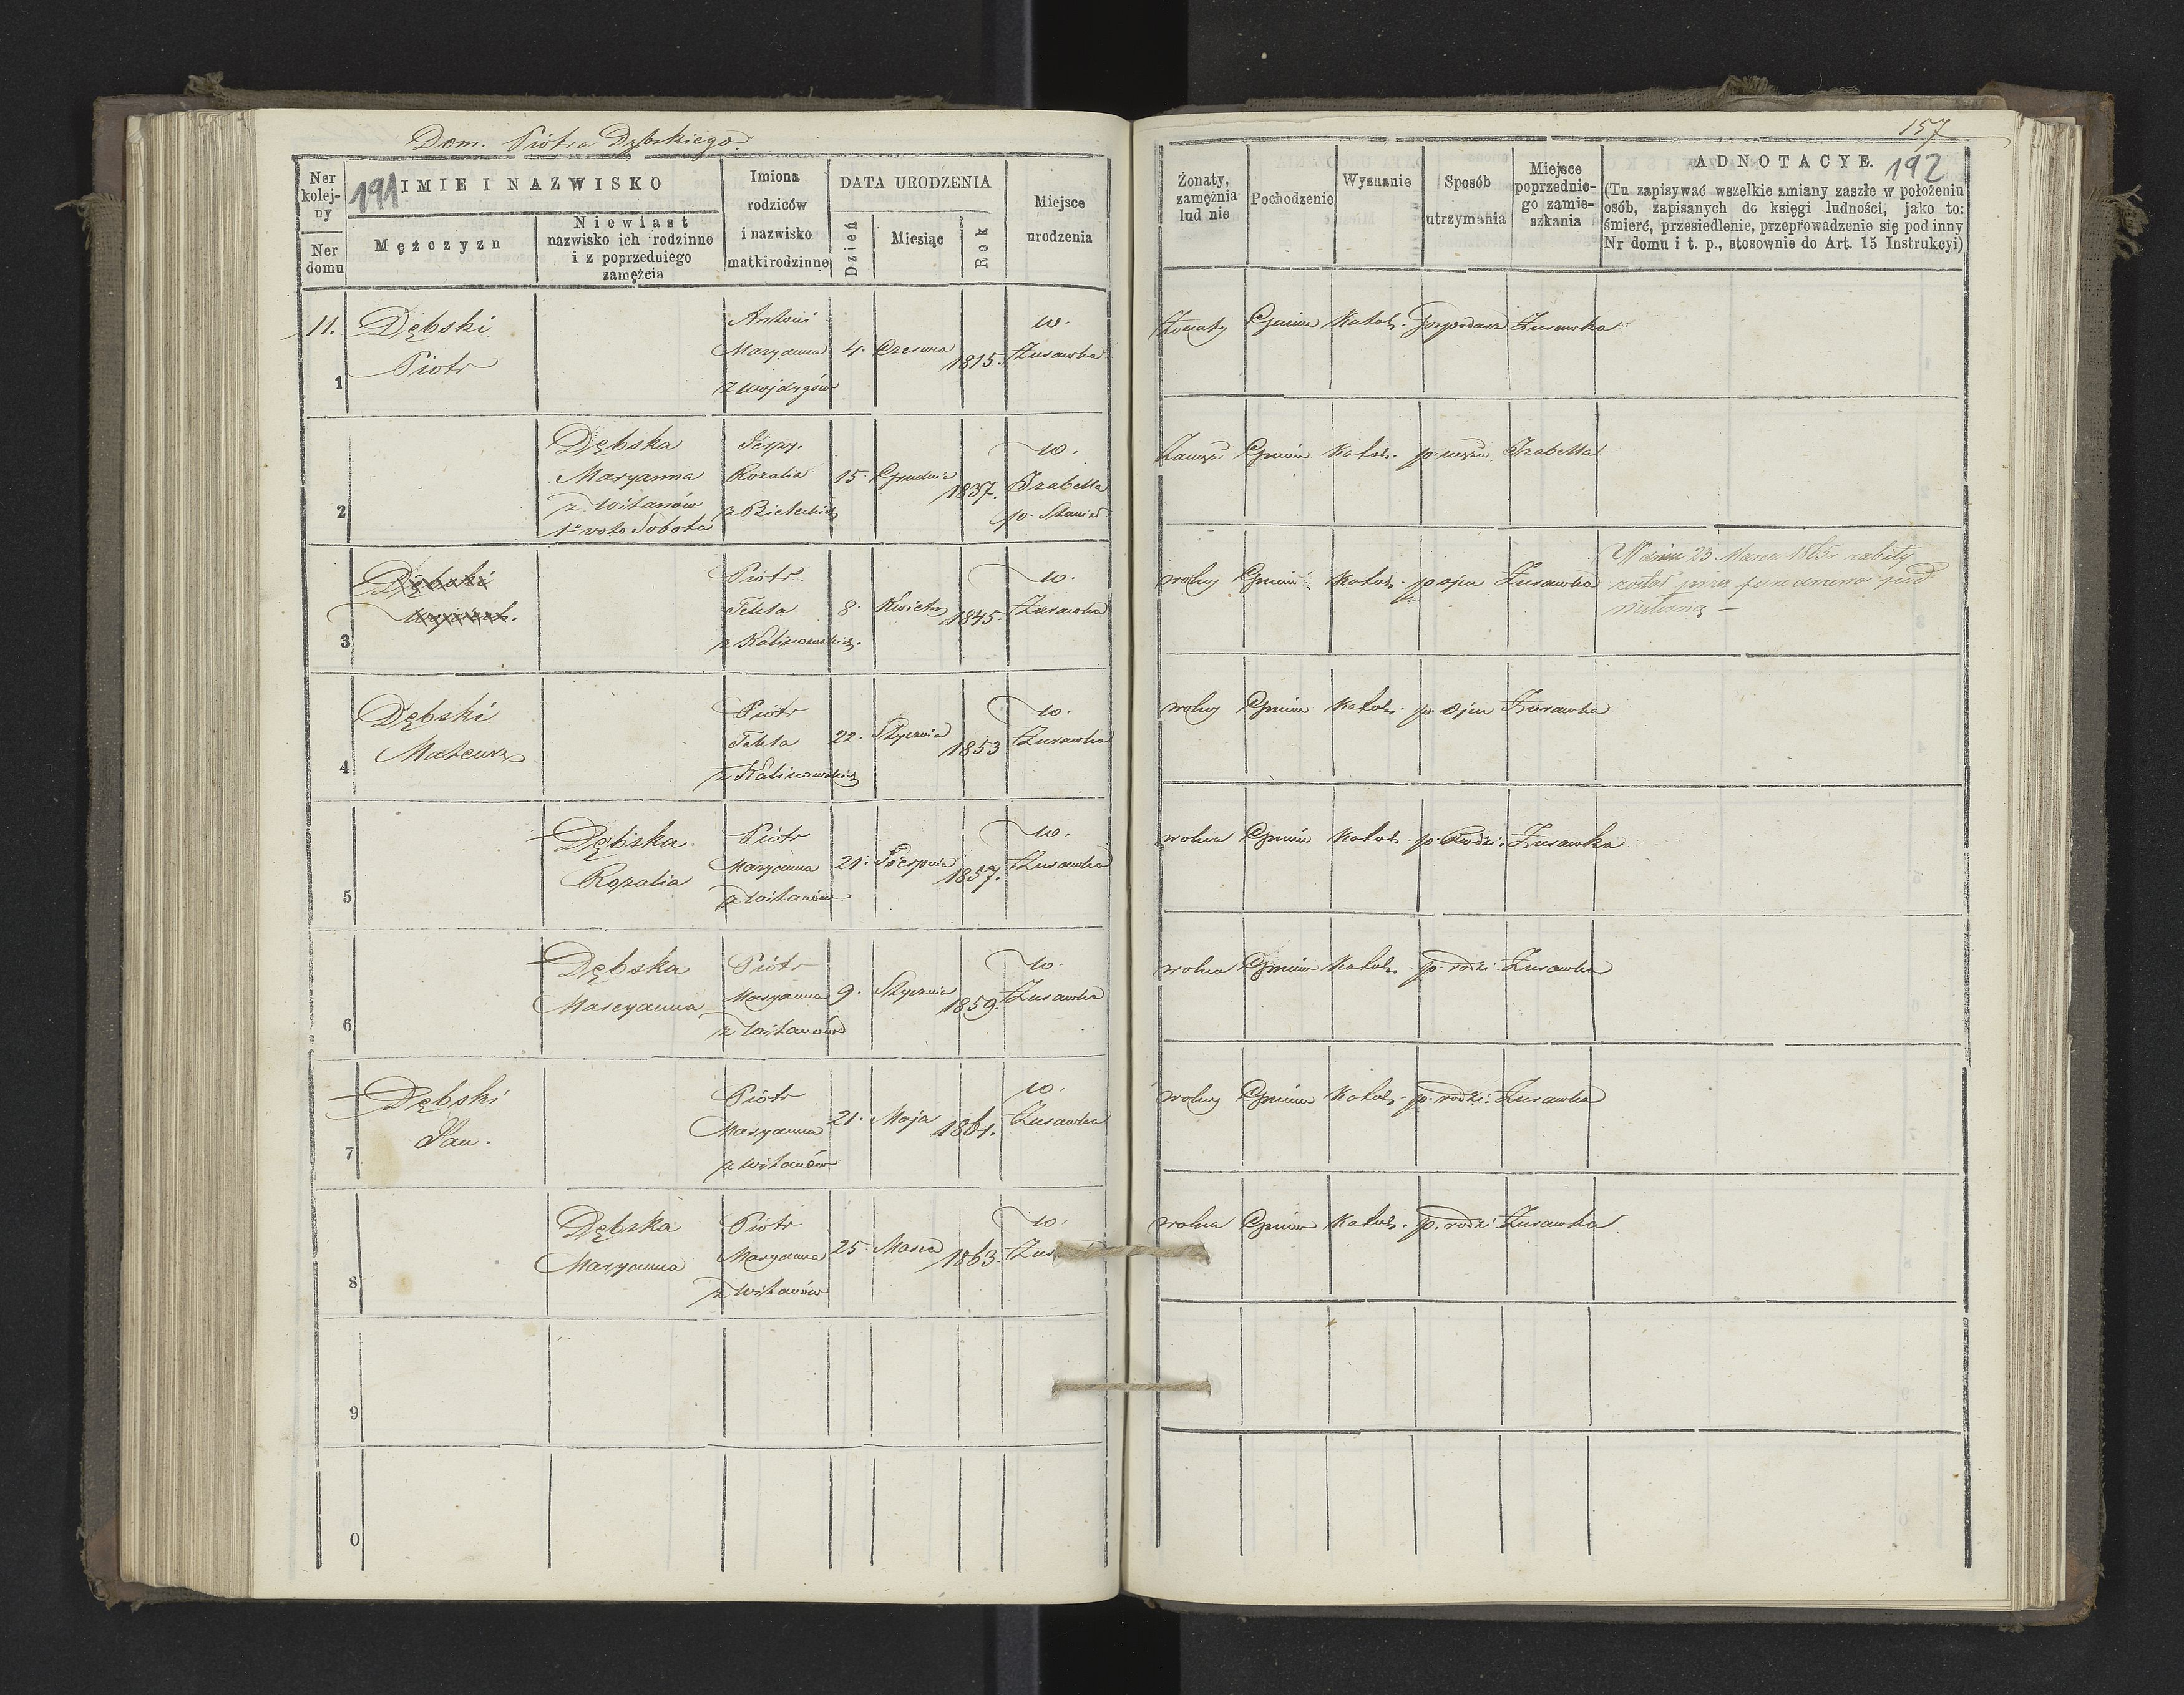 Dom. Piotra Dębskiego.
Ner kolejny
Ner domu
191
IMIE I NAZWISKO
Mężczyzn
Niewiast
nazwisko ich rodzinne
i z poprzedniego
zamężcia
Imiona
rodziców
i nazwisko
matki rodzinne
DATA URODZENIA
Dzień
Miesiąc
Rok
Miejsce
urodzenia
11.
1
Dębski
Piotr
Antoni
Maryanna
4. Czerwca 1815.
w.
Żurawka
2
Dębska
Maryanna
z Witanów
1º voto Sobota
Rozalia
15. Grudnia 1837.
w.
Izabella
3
Dębski
Piotr
Tekla
z Kalinowskich
8. Kwietn 1845.
w.
Żurawka
4
Dębski
Mateusz
Piotr
Tekla
z Kalinowskich
22. Stycznia 1853
w.
Żurawka
5
Dębska
Rozalia
Piotr
Maryanna
z Witanów
21. Sierpnia 1857.
w.
Żurawka
6
Dębska
Marcyanna
Piotr
Maryanna
z Witanów
9. Stycznia 1859.
w.
Żurawka
7
Dębski
Jan.
Piotr
Maryanna
z Witanów
21. Maja 1861.
w.
Żurawka
8
Dębska
Maryanna
Piotr
Maryanna
z Witanów
25. Marca 1863.
w.
9
0
157
Żonaty,
zamężnia
lud nie
Pochodzenie
Wyznanie
Sposób
utrzymania
Miejsce
poprzednie-
go zamie-
szkania
ADNOTACYE.
192
(Tu zapisywać wszelkie zmiany zaszłe w położeniu
osób, zapisanych do księgi ludności, jako to:
śmierć, przesiedlenie, przeprowadzenie się pod inny
Nr domu i t. p., stosownie do Art. 15 Instrukcyi)
Żonaty Gminn Katol. Gospodarz Żurawka
Gminn Katol. p. mężu Izabella
wolny Gminn Katol. p ojcu Żurawka
W dniu 23 Marca 1865 zabity
został przez
wolny Gminn Katol. p. Ojcu Żurawka
wolna Gminn Katol. p. Rodzi. Żurawka
wolna Gminn Katol. p. rodzi. Żurawka
wolny Gminn Katol. p. rodzi. Żurawka
wolna Gminn Katol. p. rodzi Żurawka